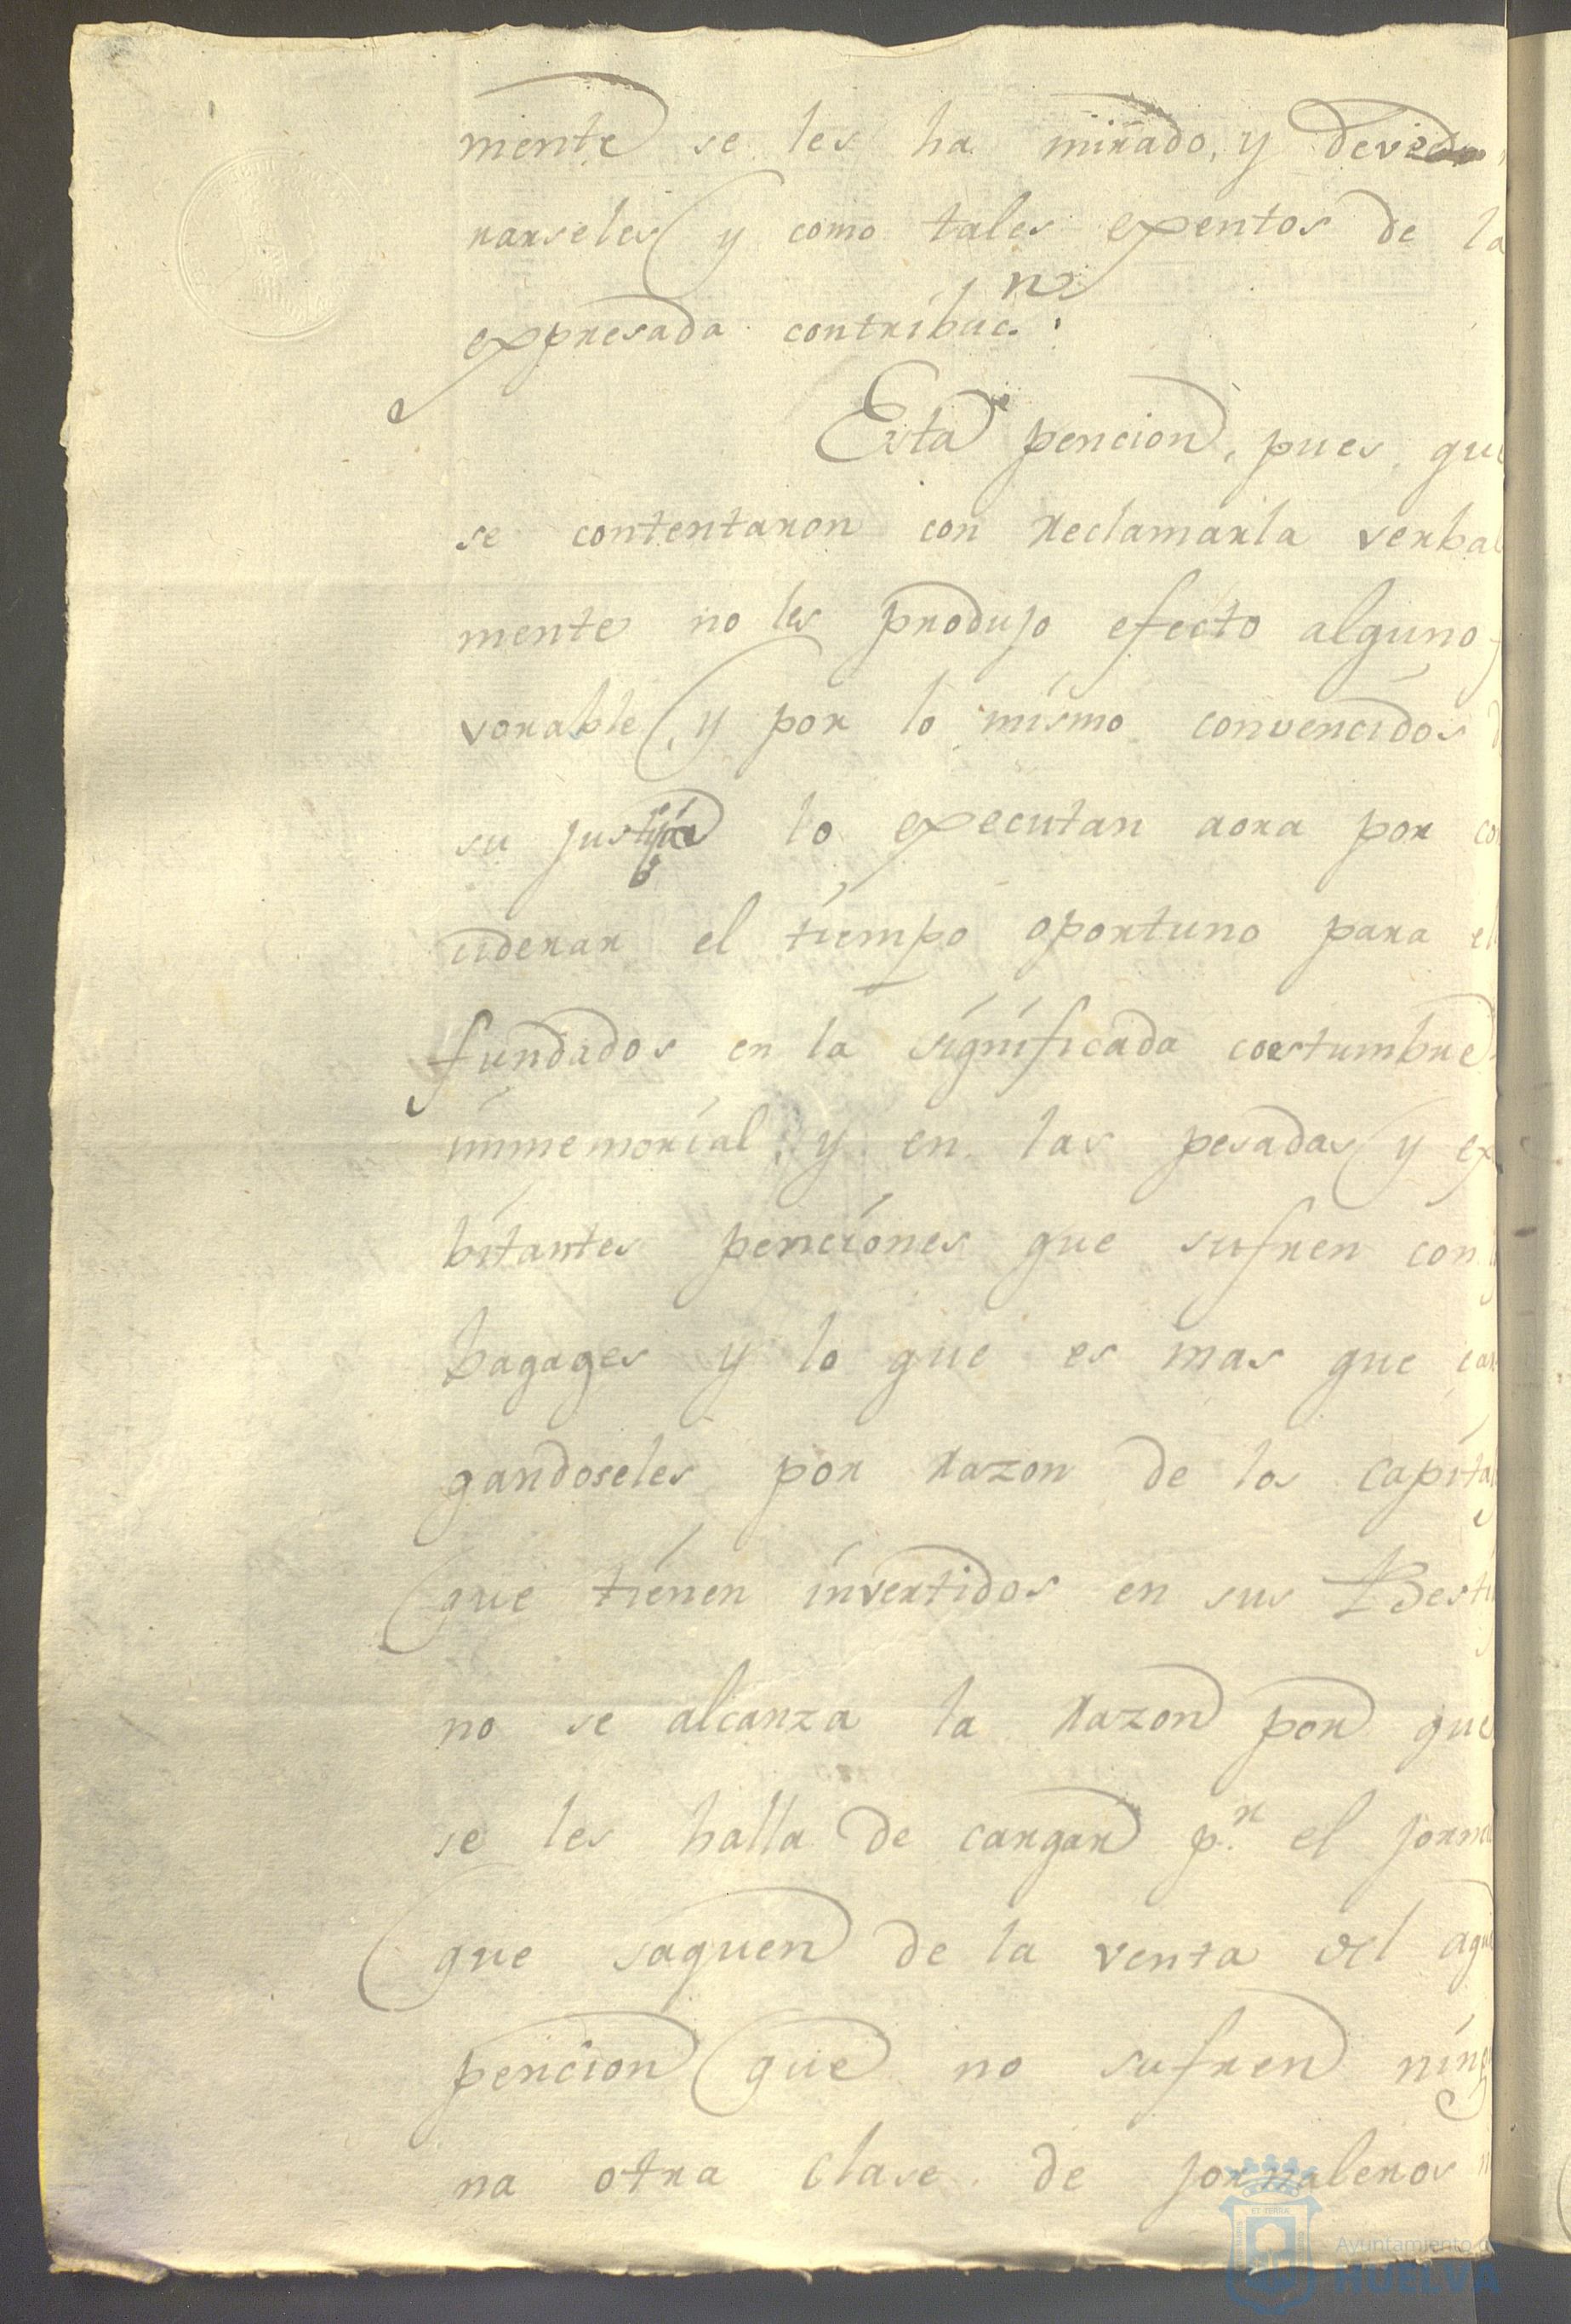 mente se les ha mirado, y deve
rarseles y como tales exentos de la
expresada contribuc.n
Esta pencion, pues, que
se contentaron con reclamarla verbal
mente no les produjo efecto alguno f
vorable, y por lo mismo convencidos d
su justicia lo executan aora por con
ciderar el tiempo oportuno para el
fundados en la significada costumbre
immemorial, y en las pesadas y ex
bitantes penciones que sufren con
bagages y lo que es mas que car
gandoseles por razon de los capital
que tienen invertidos en sus Besti
no se alcanza la razon por que
se les halla de cargar p.r el jorna
que saquen de la venta del agua
pencion que no sufren ningu
na otra clase de jornaleros
Ayuntamiento de
HUELVA